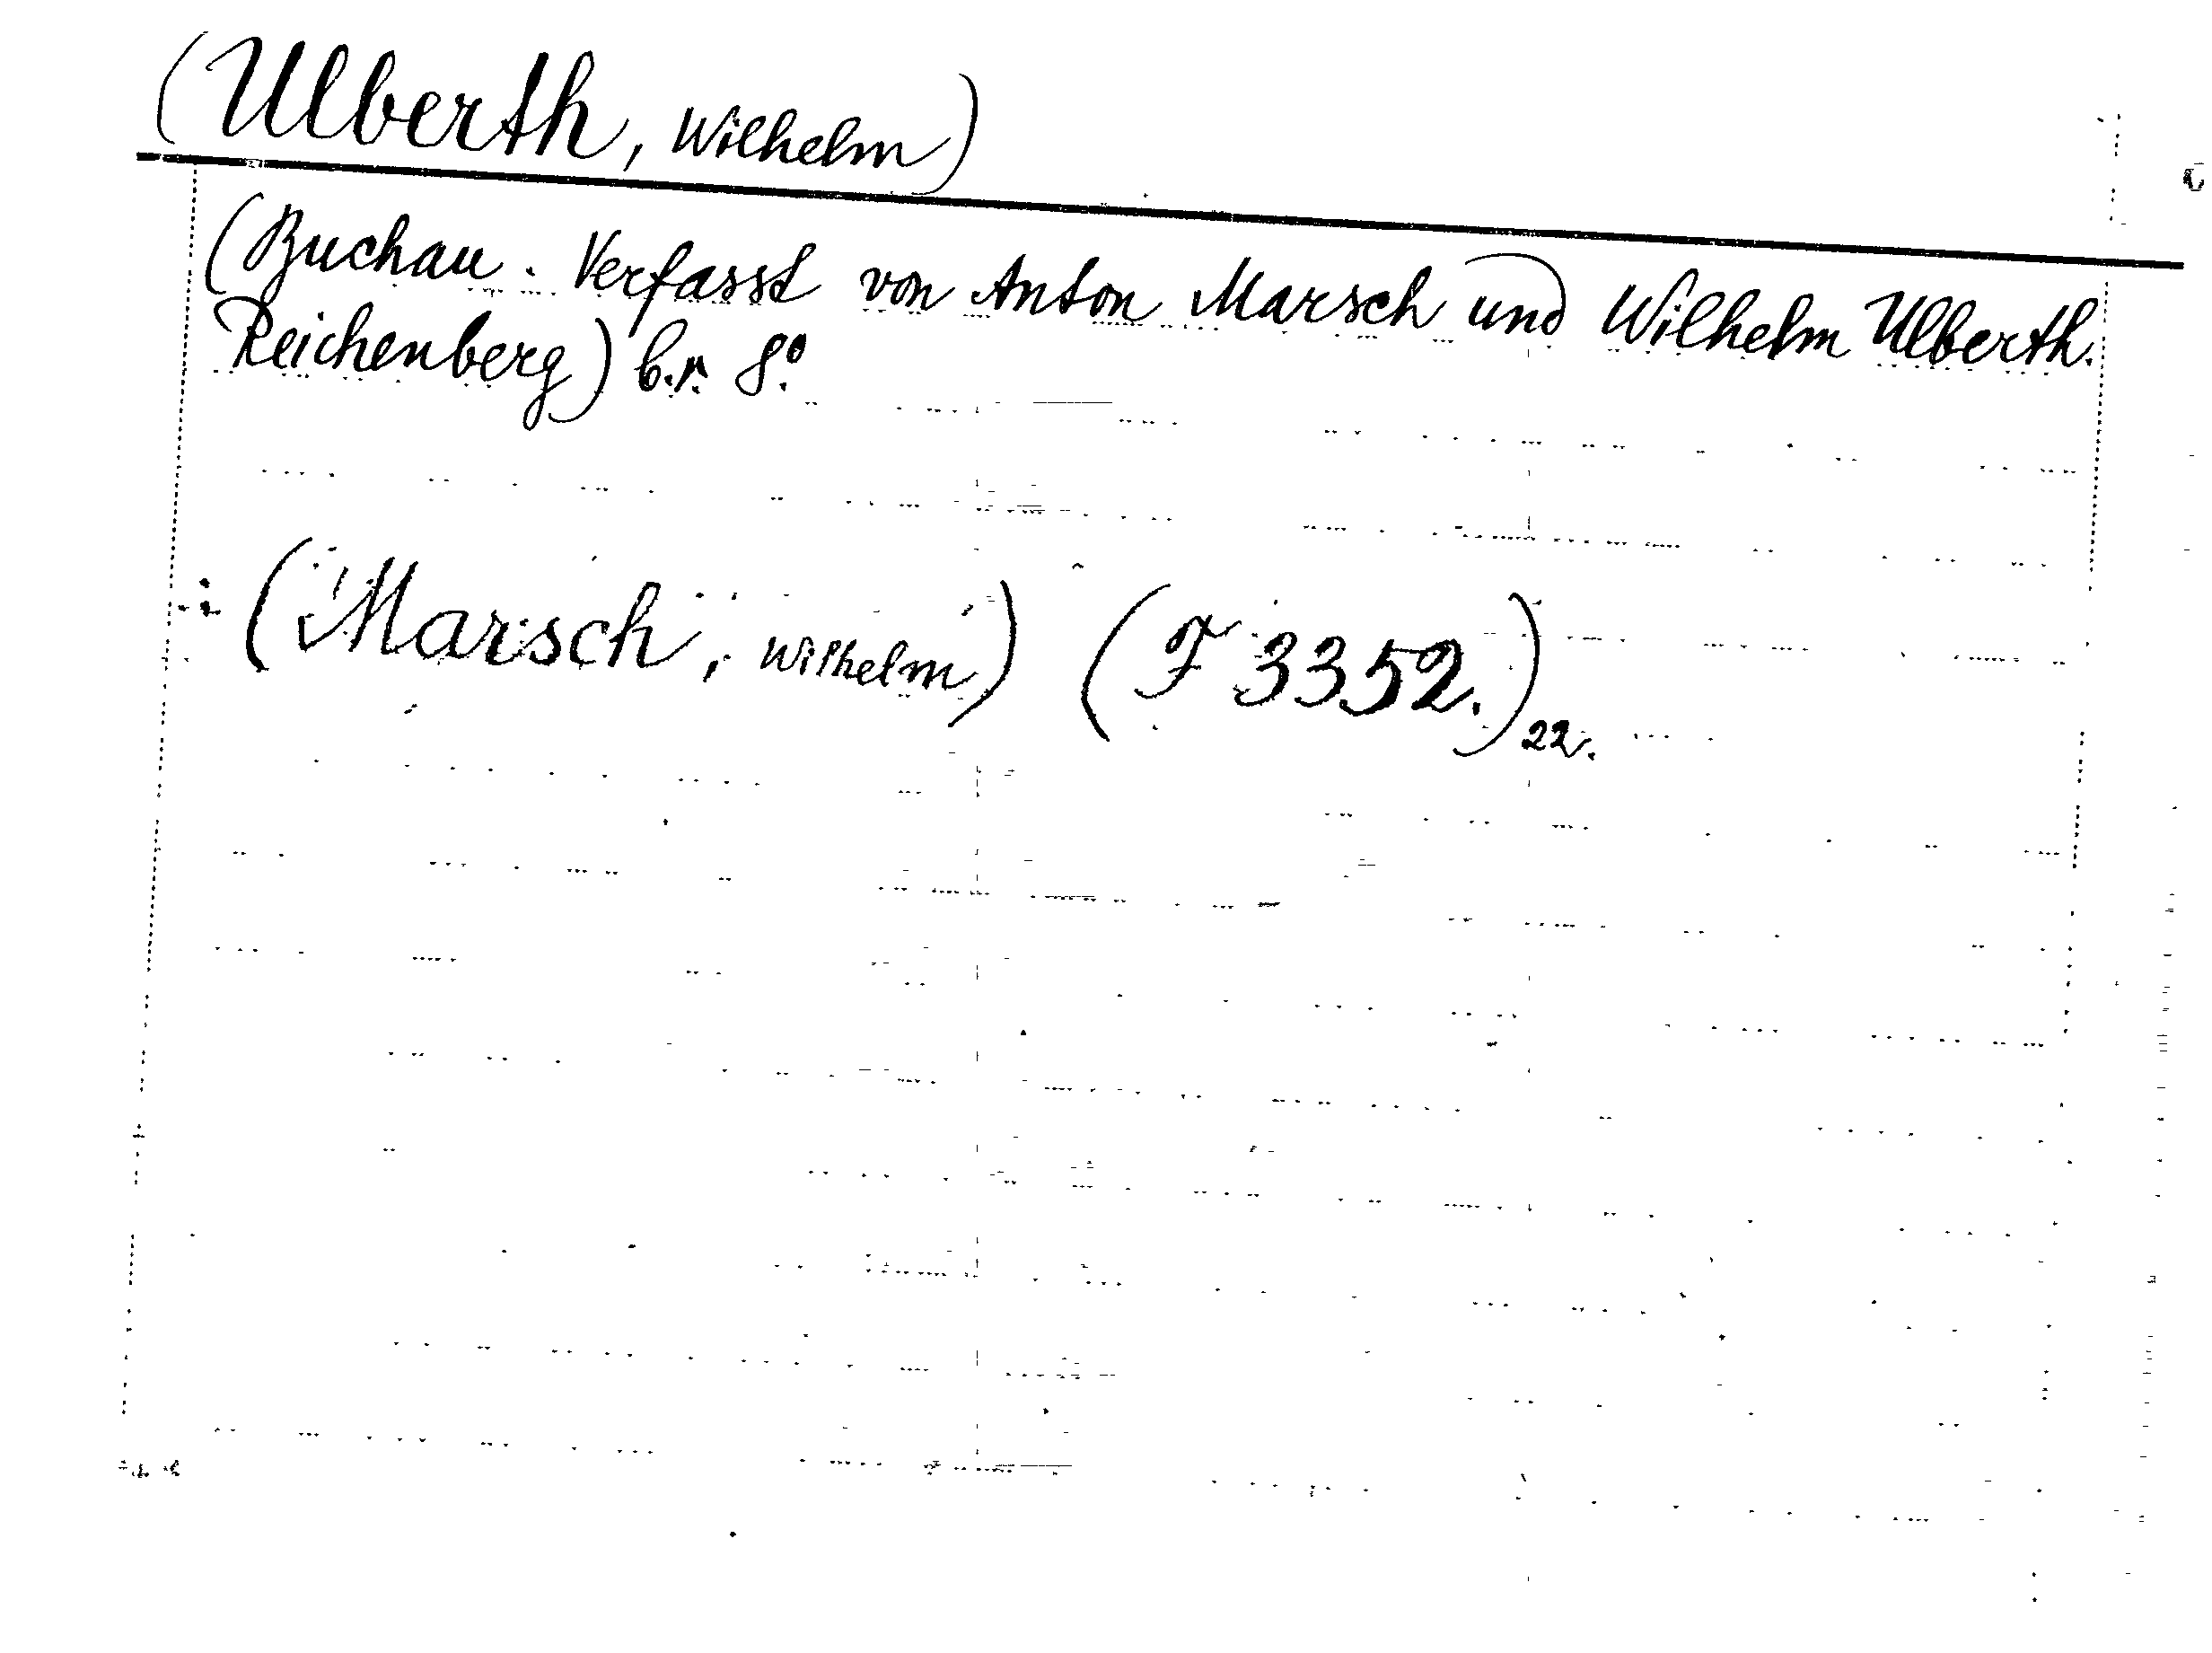 (Ulberth, Wilhelm)
(Buchau. Verfasst von Anton Marsch und Wilhelm Ulberth.
Reichenberg) b.r. 8°.
(Marsch, Wilhelm) (F 3352.) 22.